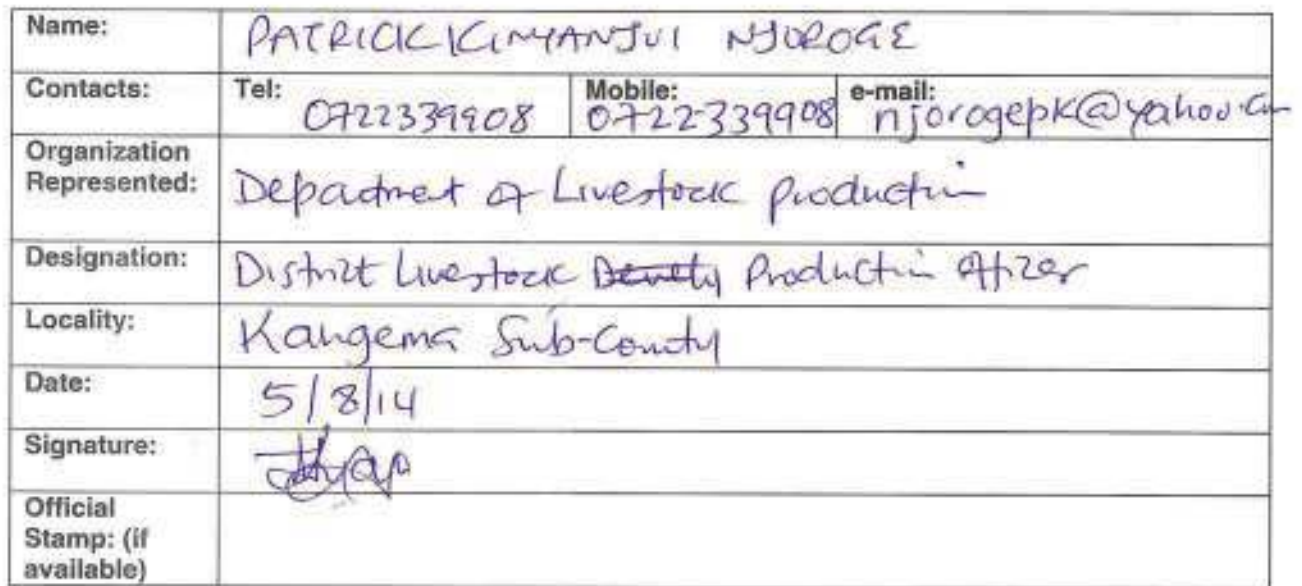 Name: PATRICK KINYANJUI NJOROGE
Contacts: Tel: 0722339908 Mobile: 0722-339908 e-mail: njorogepk@yahoo.com
Organization
Represented: Department of Livestock Production
Designation: District Livestock Production Officer
Locality: Kangema Sub-County
Date: 5/8/14
Signature:
Official
Stamp: (if
available)